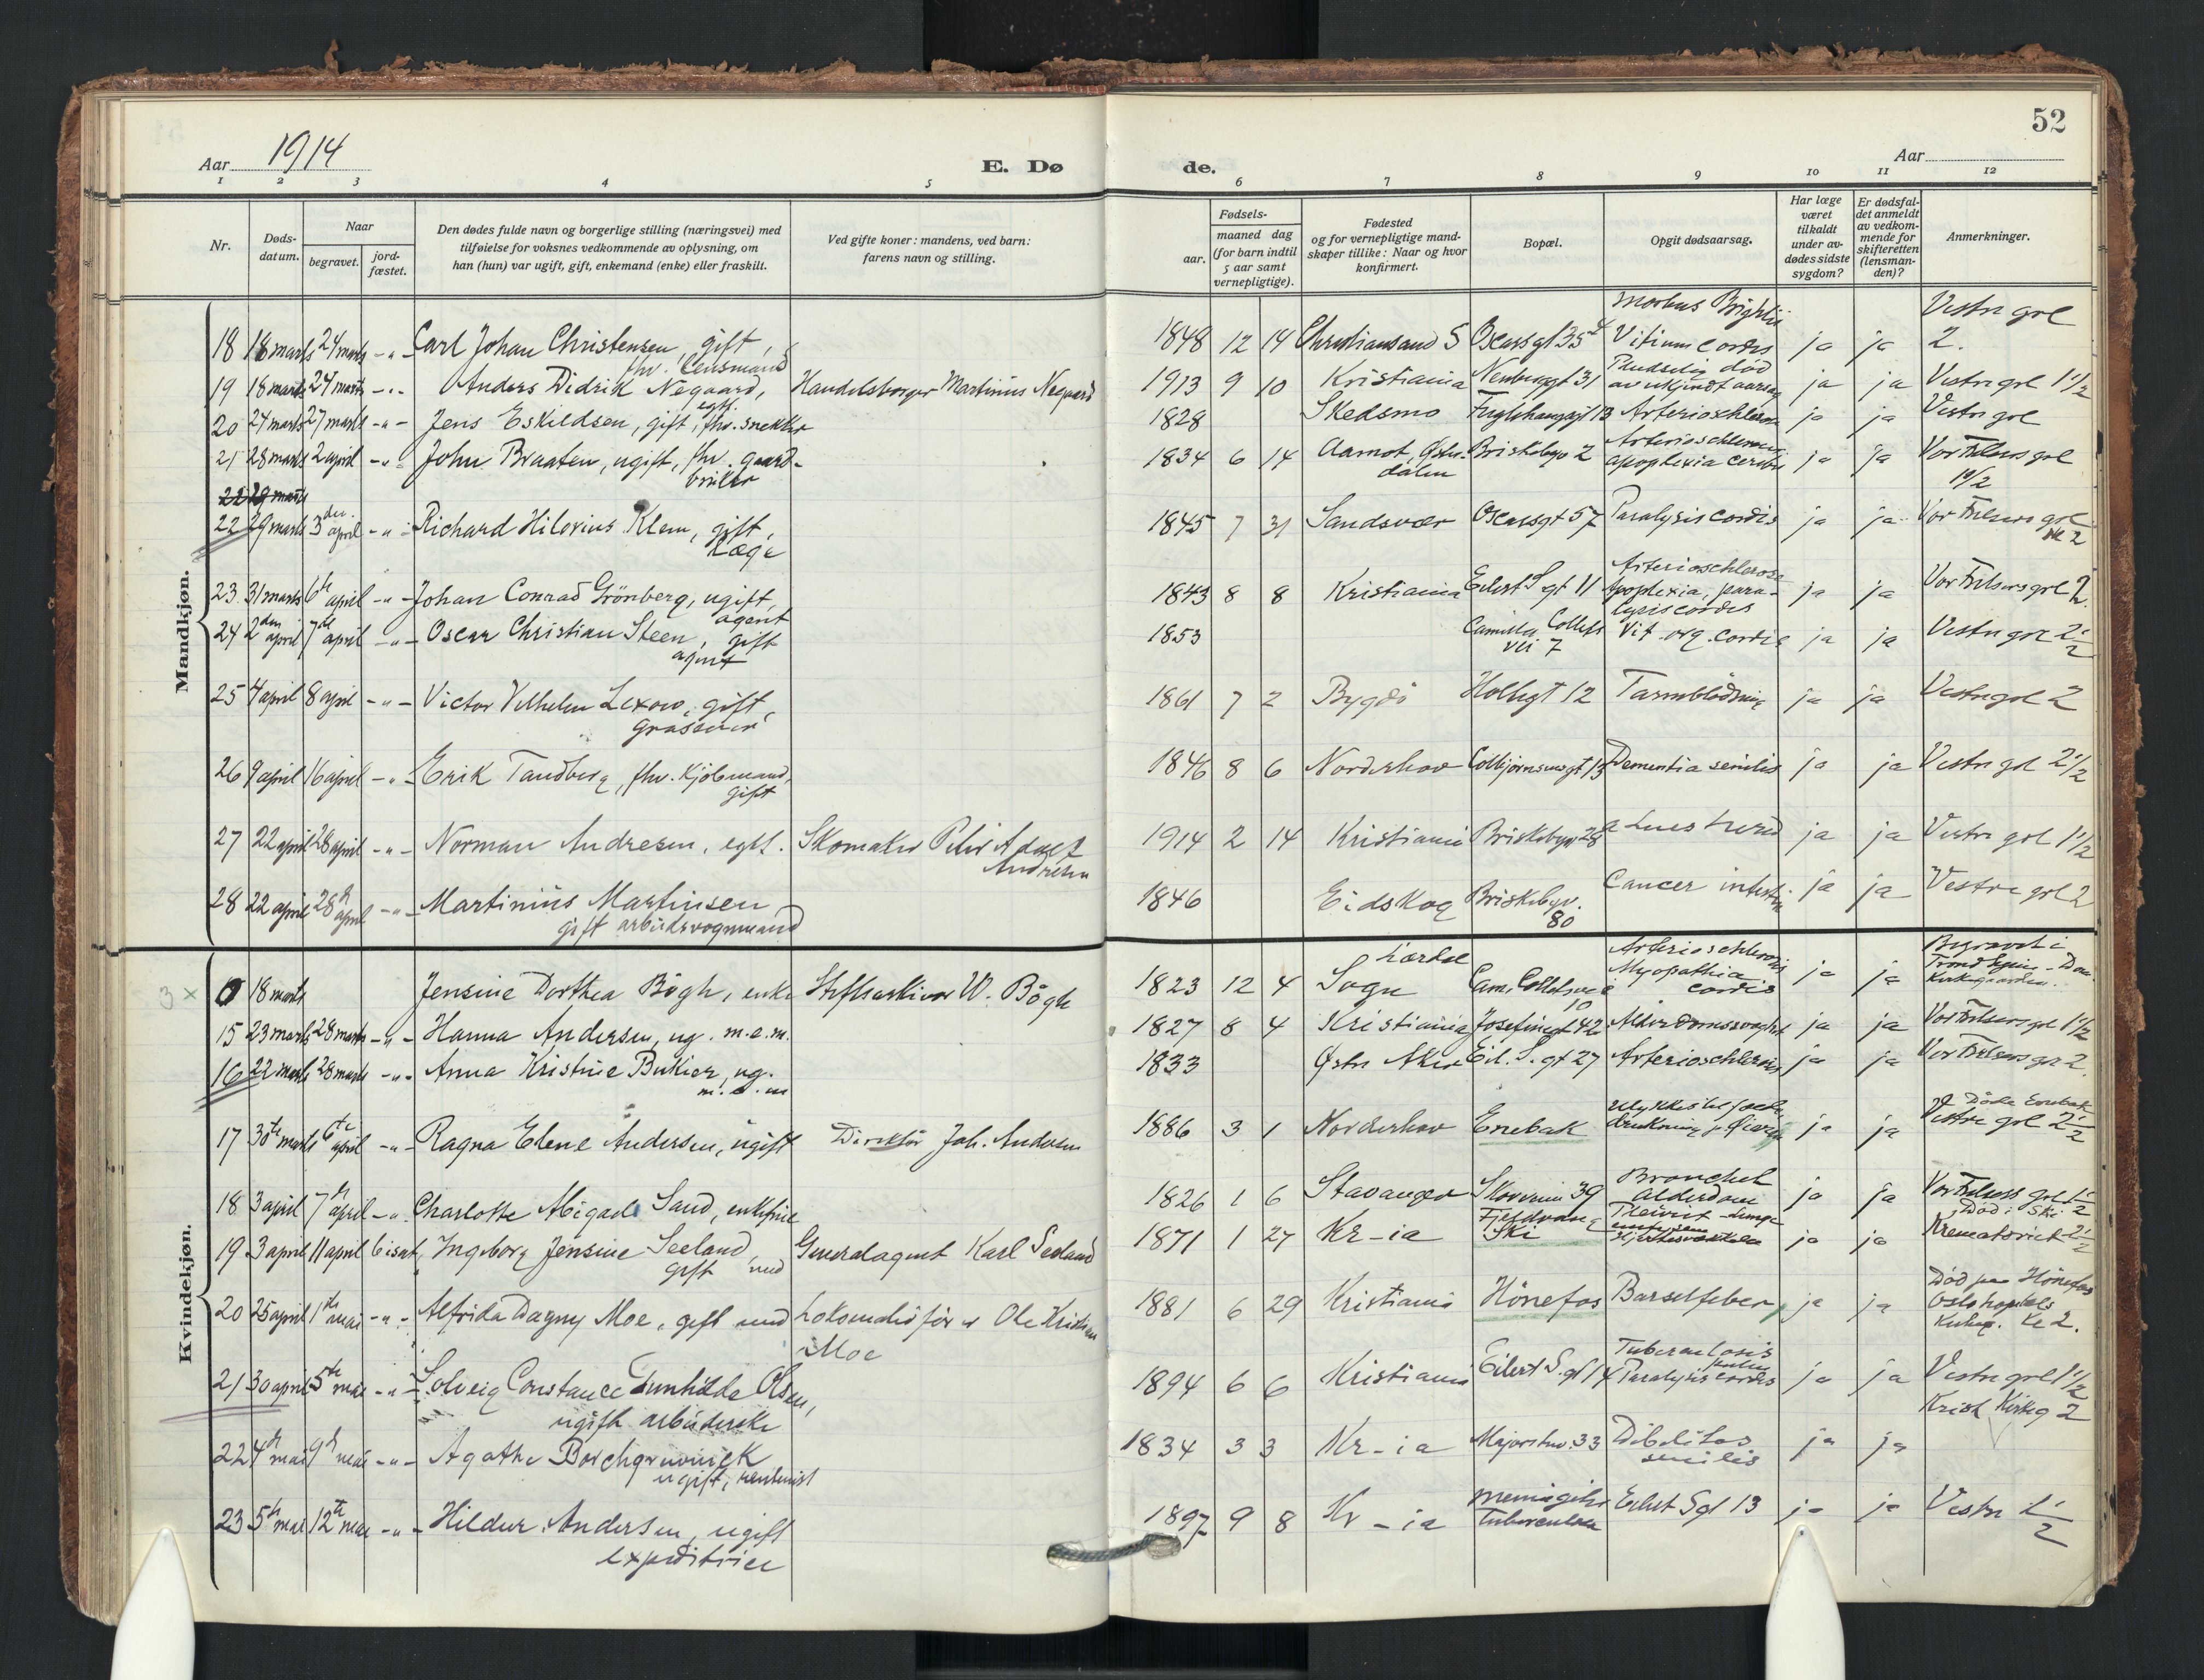 52
Aar 1914
E. Dø
de.
Aar
1 2 3 4 5 6 7 8 9 10 11 12
Nr.
Døds-
datum.
Naar
begravet.
jord-
fæstet.
Den dødes fulde navn og borgerlige stilling (næringsvei) med
tilføielse for voksnes vedkommende av oplysning, om
han (hun) var ugift, gift, enkemand (enke) eller fraskilt.
Ved gifte koner: mandens, ved barn:
farens navn og stilling.
Fødsels-
aar.
maaned dag
(for barn indtil
5 aar samt
vernepligtige).
Fødested
og for vernepligtige mand-
skaper tillike: Naar og hvor
konfirmert.
Bopæl.
Opgit dødsaarsag.
Har læge
været
tilkaldt
under av-
dødes sidste
sygdom?
Er dødsfal-
det anmeldt
av vedkom-
mende for
skifteretten
(lensman-
den)?
Anmerkninger.
Mandkjøn.
Morbus Brightii Vestre grl
18 18 marts 24 marts -"- Carl Johan Christensen, gift, 1848 12 14 Christiansand S Oscarsgt 35 Vitium cordis ja ja 2.
fhv. Lensmand Pludselig død
19 18 marts 24 marts -"- Anders Didrik Nøgaard, Handelsborger Martinius Nøgaard 1913 9 10 Kristiania 31 av ukjendt aarsag ja ja Vestre grl 1 1/2
egte.
20 24 marts 27 marts -"- Jens Eskildsen, gift, fhv. snekker 1828 Skedsmo 13 ja ja Vestre grl
21 28 marts 2 april -"- John Braaten, ugift, fhv. gaard- 1834 6 14 Aamot, Øster- Briskebyv 2 Arterioschlerosis apoplexia cerebri ja ja Vor Frelsers grl
bruker dalen 1 1/2
22 29 marts
22 29 marts 3 april -"- Richard Hilorius Klem, gift, 1845 7 31 Sandsvær Oscarsgt 57 Paralysis cordis ja ja Vor Frelsers grl
Læge 2
Arterioschlerose
23 31 marts 6te april -"- Johan Conrad Grönberg, ugift, 1843 8 8 Kristiania Eilert S gt 11 Apoplexia, para- ja ja Vor Frelsers grl 2
agent lysis cordis
24 2den april 7de april -"- Oscar Christian Steen, gift 1853 Camilla Colletts Vit. org. cordis ja ja Vestre grl 2 1/2
agent vei 7
25 4 april 8 april -"- Victor Vilhelm Lexow, gift, 1861 7 2 Bygdö Holbgt 12 Tarmblödning ja ja Vestre grl 2
grosserer
26 9 april 16 april -"- Erik Tandberg, fhv. Kjöbmand, 1846 8 6 Norderhov Colbjørnsensgt 13 Dementia senilis ja ja Vestre grl 2 1/2
gift
27 22 april 28 april -"- Norman Andresen, egte. Skomaker Peter Adolf 1914 2 14 Kristiania Briskebyv 28 ja ja Vestre grl 1 1/2
Andresen
28 22 april 28 april -"- Martinius Martinsen 1846 Eidskog Briskebyv. Cancer intestin. ja ja Vestre grl 2
gift arbeidsvognmand 80
Kvindekjøn.
Lærdal Arterioschlerosis Begravet i
3 x 0 18 marts Jensine Dorthea Bögh, enke Stiftsarkivar W. Bögh 1823 12 4 Sogn Cam. Colletsvei Myopathia ja ja Trondhjem - Dom
10 cordis Kirkegaarden.
15 23 marts 28 marts -"- Hanna Andersen, ug. m.e.m. 1827 8 4 Kristiania Josefinegt 42 Alderdomssvaghet ja ja Vor Frelsers grl 1 1/2
16 22 marts 28 marts -"- Anna Kristine Bukier, ug. 1833 Østre Aker Eil. S. gt 27 Arterioschlerosis ja ja Vor Frelsers grl 2.
m.e.m
17 30te marts 6te april -"- Ragna Elene Andersen, ugift Direktör Joh. Andersen 1886 3 1 Norderhov Enebak drukning ja ja Døde Enebak Vestre grl 2 1/2
Bronchit
18 3 april 7de april -"- Charlotte Abigael Sand, enkefrue 1826 1 6 Stavanger Skovveien 39 Alderdom ja ja Vor Frelsers grl 1 1/2
Pleurit - lunge- Död i Ski.
19 3 april 11 april 6 isat. Ingeborg Jensine Seeland, Generalagent Karl Seeland 1871 1 27 Kr-ia Ski emfysem ja ja Krematoriet 2 1/2
gift med
20 25 april 1ste mai -"- Alfrida Dagny Moe, gift med Lokomotivförer Ole Kristian 1881 6 29 Kristiania Hönefos Barselfeber ja ja Død paa Hönefos
Moe Oslo hospitals
Kirkeg. Kl 2.
Tuberculosis pulm
21 30 april 5te mai -"- Solveig Constance Gunhilda Olsen, 1894 6 6 Kristiania Eilert S. gt 14 Paralysis cordis ja ja Vestre grl 1 1/2
ugift arbeiderske Krist Kirkeg 2
22 4de mai 9de mai -"- Agathe Borchgrevinck 1834 3 3 Kr-ia Majorstuv. 33 Debilitas ja ja
ugift, rentenist senilis
23 5te mai 12te mai -"- Hildur Andersen, ugift 1897 9 8 Kr-ia Meningitis Tuberculosa Eilert S gt 13 ja ja Vestre 1 1/2
expeditrice